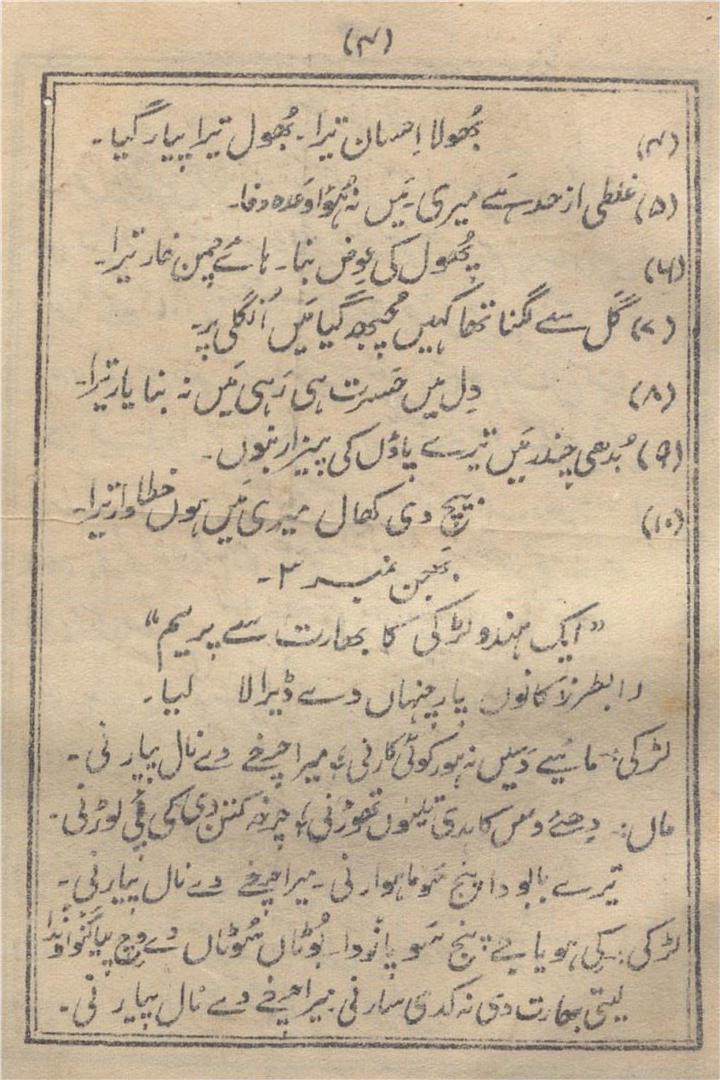 (۴)
(۴) بُھولا اِحسان تیرا۔ بُھول تیرا پیار گیا۔
(۵) غلطی از حد ہَے میری۔ مَیں نہ ہُؤا وعدہ وفا۔
(۶) پُھول کی عِوض بنا۔ ہائے چمن خار تیرا۔
(۷) گَل سے لگنا تھا کہیں چُبھ گیا مَیں اُنگلی پر
(۸) دِل میں حَسرت ہی رَہی مَیں نہ بنا یار تیرا۔
(۹) بُدھی چندر مَیں تیرے پاؤں کی پیزار بنُوں۔
(۱۰) بیچ دی کھال میری مَیں ہوں خطاوار تیرا۔
بھَجن نمبر ۳۔
”ایک ہندو لڑکی کا بھارت سے پریم“
را بطرز کانوں پار چنہاں دے ڈیرا لا لیا۔
لڑکی:۔ مائیے دَسیں نہ ہور کوئی کار نی؛ میرا چرخے دے نال پیار نی۔
ماں:۔ دھئے دس کاہدی تینوں تھوڑ نی؛ چرخہ کتن دی کی پئی لوڑ نی۔
تیرے بابو دا پنج سَو ماہوار نی۔ میرا چرخے دے نال پیار نی۔
لڑکی:۔ کی ہویا جے پنج سَو پاؤندا۔ بُوٹاں سُوٹاں دے وچ پیا گنواوندا
لیتی بھارت دی نہ کدی سار نی۔ میرا چرخے دے نال پیار نی۔